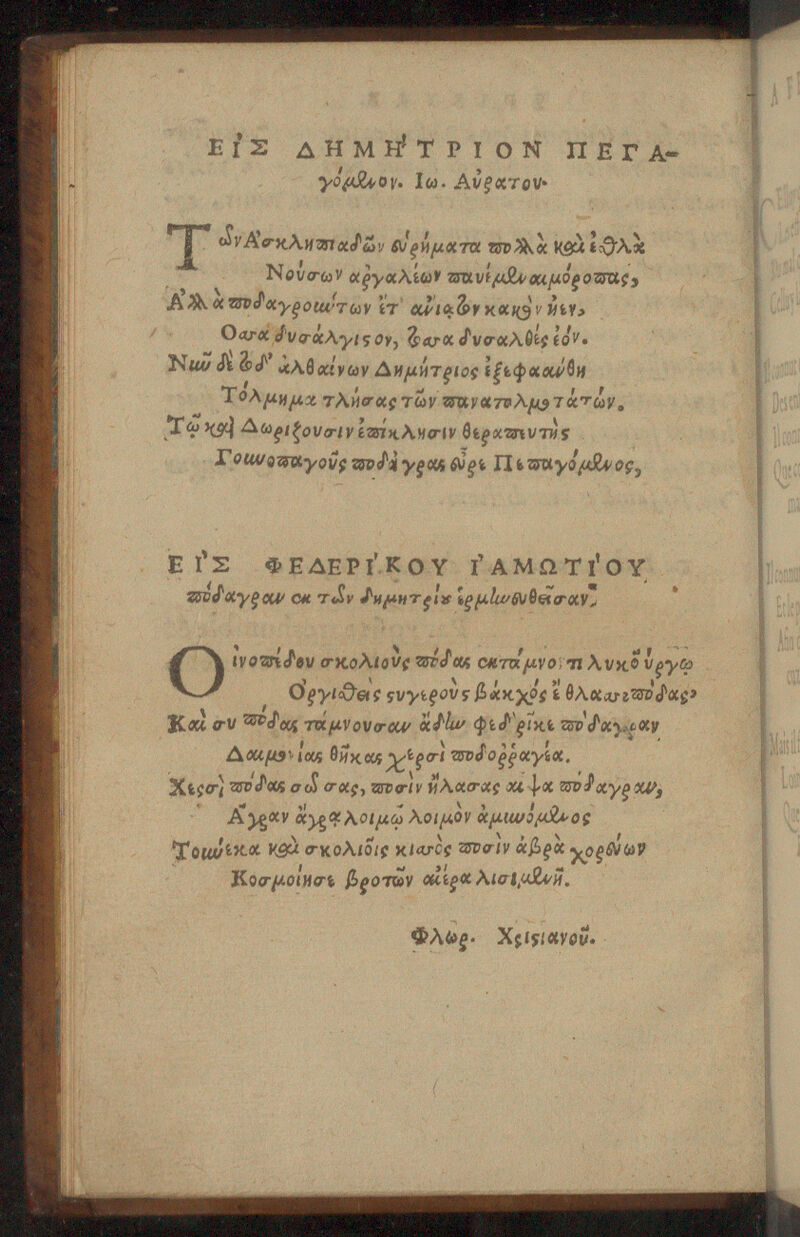 ΕἸΣ ΔΗΜΗ'ΤΡΙΟΝ ΠΕΓΑ-
γόμενον. Ιω. Αὐρατου.
Τῶν Ἀσκληπιαδῶν εὑρήματα πολλὰ καὶ ἐσθλὰ
Νούσων ἀργαλέων παυνέμεν αἱμόροπας,
Ἀλλὰ ποδαγροιώτων ἔτ' ἀνίατον κακὸν ἦεν,
Οασα δυσάλγιστον, τοσα δυσαλθές ἐόν.
Νιῦ δὲ τόδ' ἀλθαίνων Δημήτριος ἐξεφαάνθη
Τόλμημα τλήσας τῶν πανατολμοτάτων.
Τῷ καὶ Δωριξουσιν ἐπίκλησιν θεραπευτὴς
Γουνοπαγοῦς ποδάγρας εὗρε Πεπαγόμενος,
ΕΙ'Σ ΦΕΔΕΡΙ'ΚΟΥ ΓΑΜΩΤΙ'ΟΥ
πόδαγραν ἐκ τῶν δημητρίου ἑρμηνευθεῖσαν.
Οἰνοπέδου σκολιοὺς πόδας ἐκτάμνοντι Λυκούργῳ
Ὀργισθεὶς στυγεροὺς βάκχός ἑ θλάσε πόδας,
Καὶ συ πόδας τάμνουσαν ἄδην φεδ'ρίκε πο'δαγραν
Δαιμονίας θῆκας χερσὶ ποδορραγέα.
Χερσὶ πόδας σοῦ σας, ποσὶν ἤλασας αἶψα πόδαγραν,
Ἄγραν ἄγρᾳ λοιμῷ λοιμὸν ἀμυνόμενος
Τουνέκα καὶ σκολιοῖς κισσὸς ποσὶν ἁβρὰ χορεύων
Κοσμοίησε βροτῶν ἀέρα λισιμενῆ.
Φλωρ. Χριστιανοῦ.